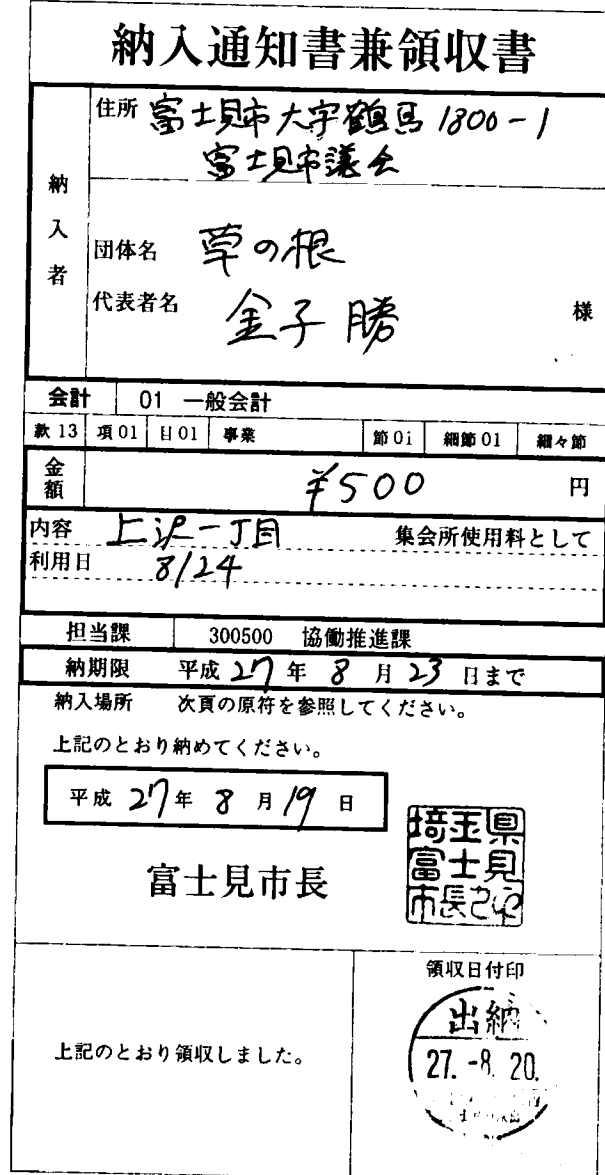 納入通知書兼領収書
納入者
住所 富士見市大字鶴馬1800-1
富士見市議会
団体名 草の根
代表者名 金子 勝 様
会計 01 一般会計
款 13 項 01 目 01 事業 節 01 細節 01 細々節
金額 ¥500 円
内容 上沢一丁目 集会所使用料として
利用日 8/24
担当課 300500 協働推進課
納期限 平成 27 年 8 月 23 日まで
納入場所 次頁の原符を参照してください。
上記のとおり納めてください。
平成 27 年 8 月 19 日
富士見市長
埼玉県
富士見
市長之印
領収日付印
上記のとおり領収しました。
出納
27.-8.20.